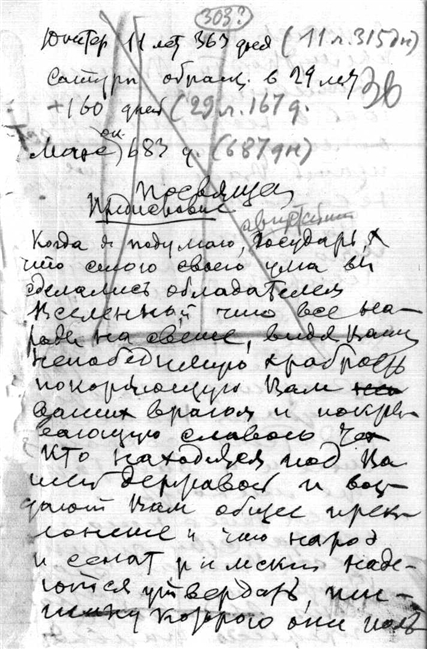 303?
Юпитер 11 лет 363 дня (11 л. 315 дн)
Сатурн обращ. в 29 лет 36
+ 160 дней (29 л. 167 д.
Марс) ок. 683 д. (687 дн)
Посвящен
Предисловие
Когда я подумаю, государь,
что силою своего ума вы
сделались обладателем
вселенной что все на-
роды на свете, видя Вашу
непобедимую храбрость
покоряющую Вам
ваших врагов и покры-
вающую славою тех
Кто находятся под Ва
шей державой и воз-
дают Вам общее прек-
лонение и что народ
и сенат римский наде-
ются утвердить
которого они